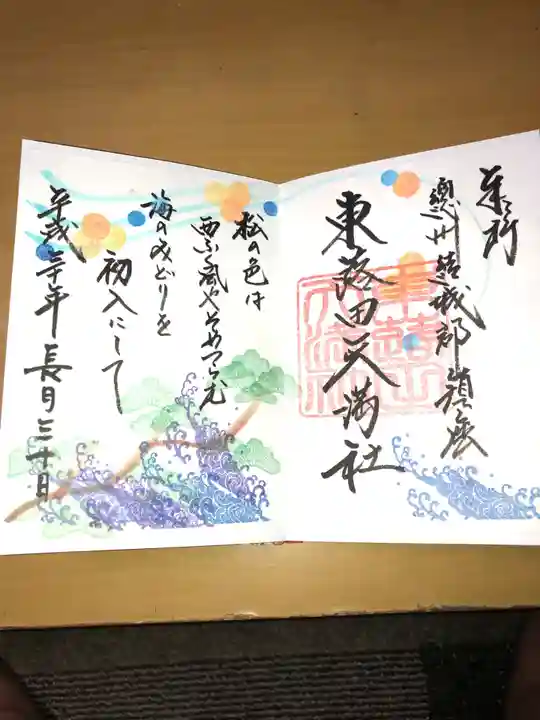 總州結城郡鎮座
東蕗田天満社
松の色は
西ふく風やそめつらむ
海のみどりを
初入にして
平成三十年長月三十日